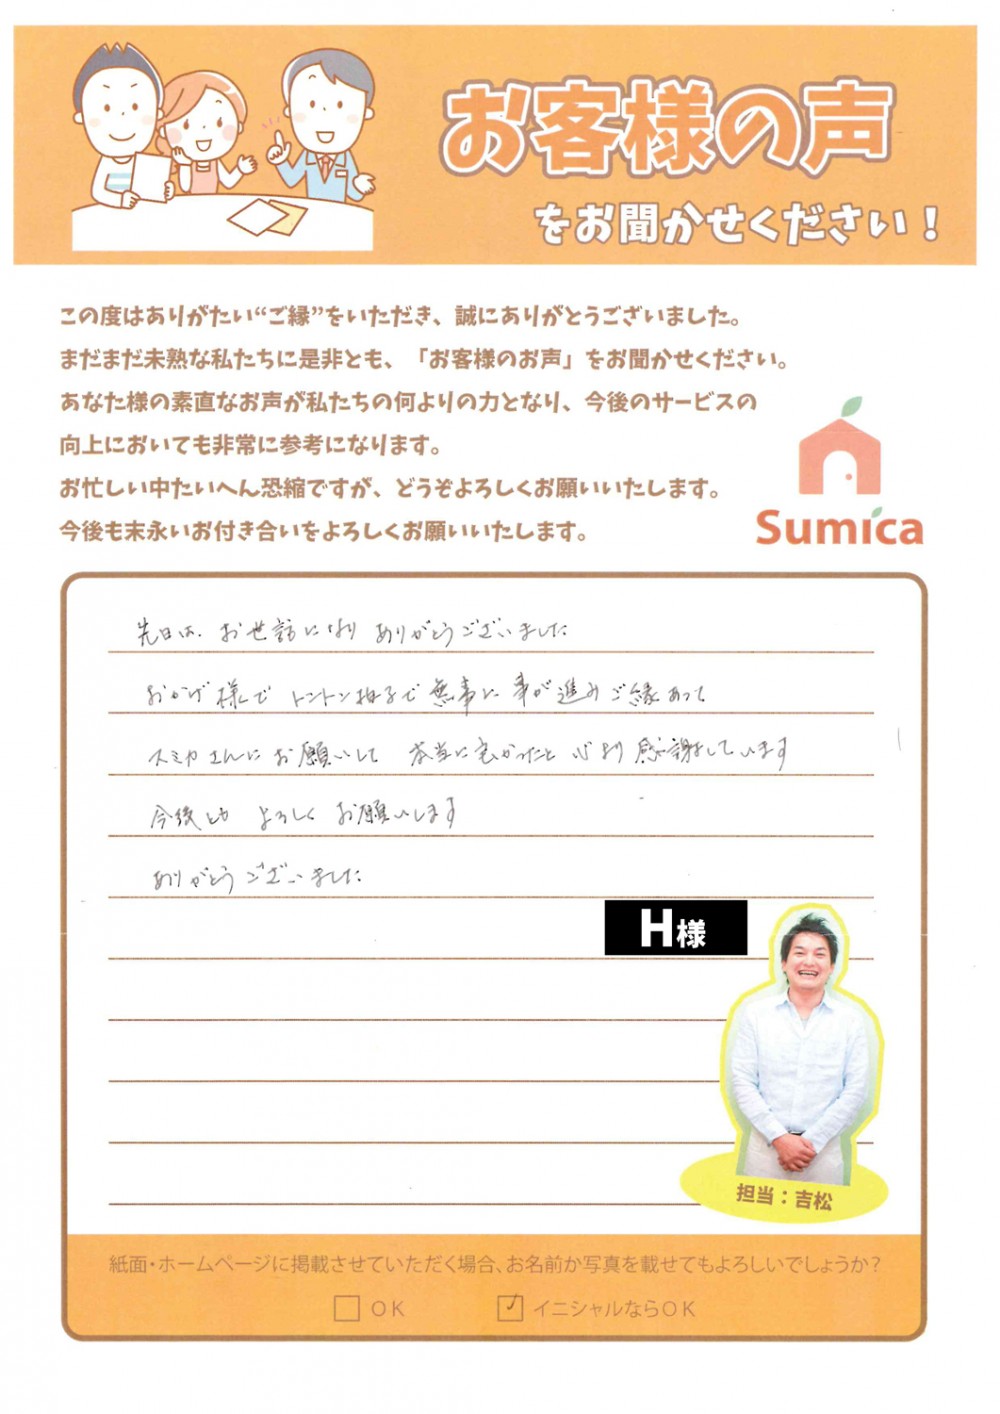 お客様の声
をお聞かせください！
この度はありがたい“ご縁”をいただき、誠にありがとうございました。
まだまだ未熟な私たちに是非とも、「お客様のお声」をお聞かせください。
あなた様の素直なお声が私たちの何よりの力となり、今後のサービスの
向上においても非常に参考になります。
お忙しい中たいへん恐縮ですが、どうぞよろしくお願いいたします。
今後も末永いお付き合いをよろしくお願いいたします。
Sumica
先日は、お世話になり ありがとうございました
おかげ様で トントン拍子で無事に事が進みご縁あって
スミカさんにお願いして 本当に良かったと 心より感謝しています
今後とも よろしく お願いします
ありがとうございました
H様
担当：吉松
紙面・ホームページに掲載させていただく場合、お名前か写真を載せてもよろしいでしょうか？
OK イニシャルならOK